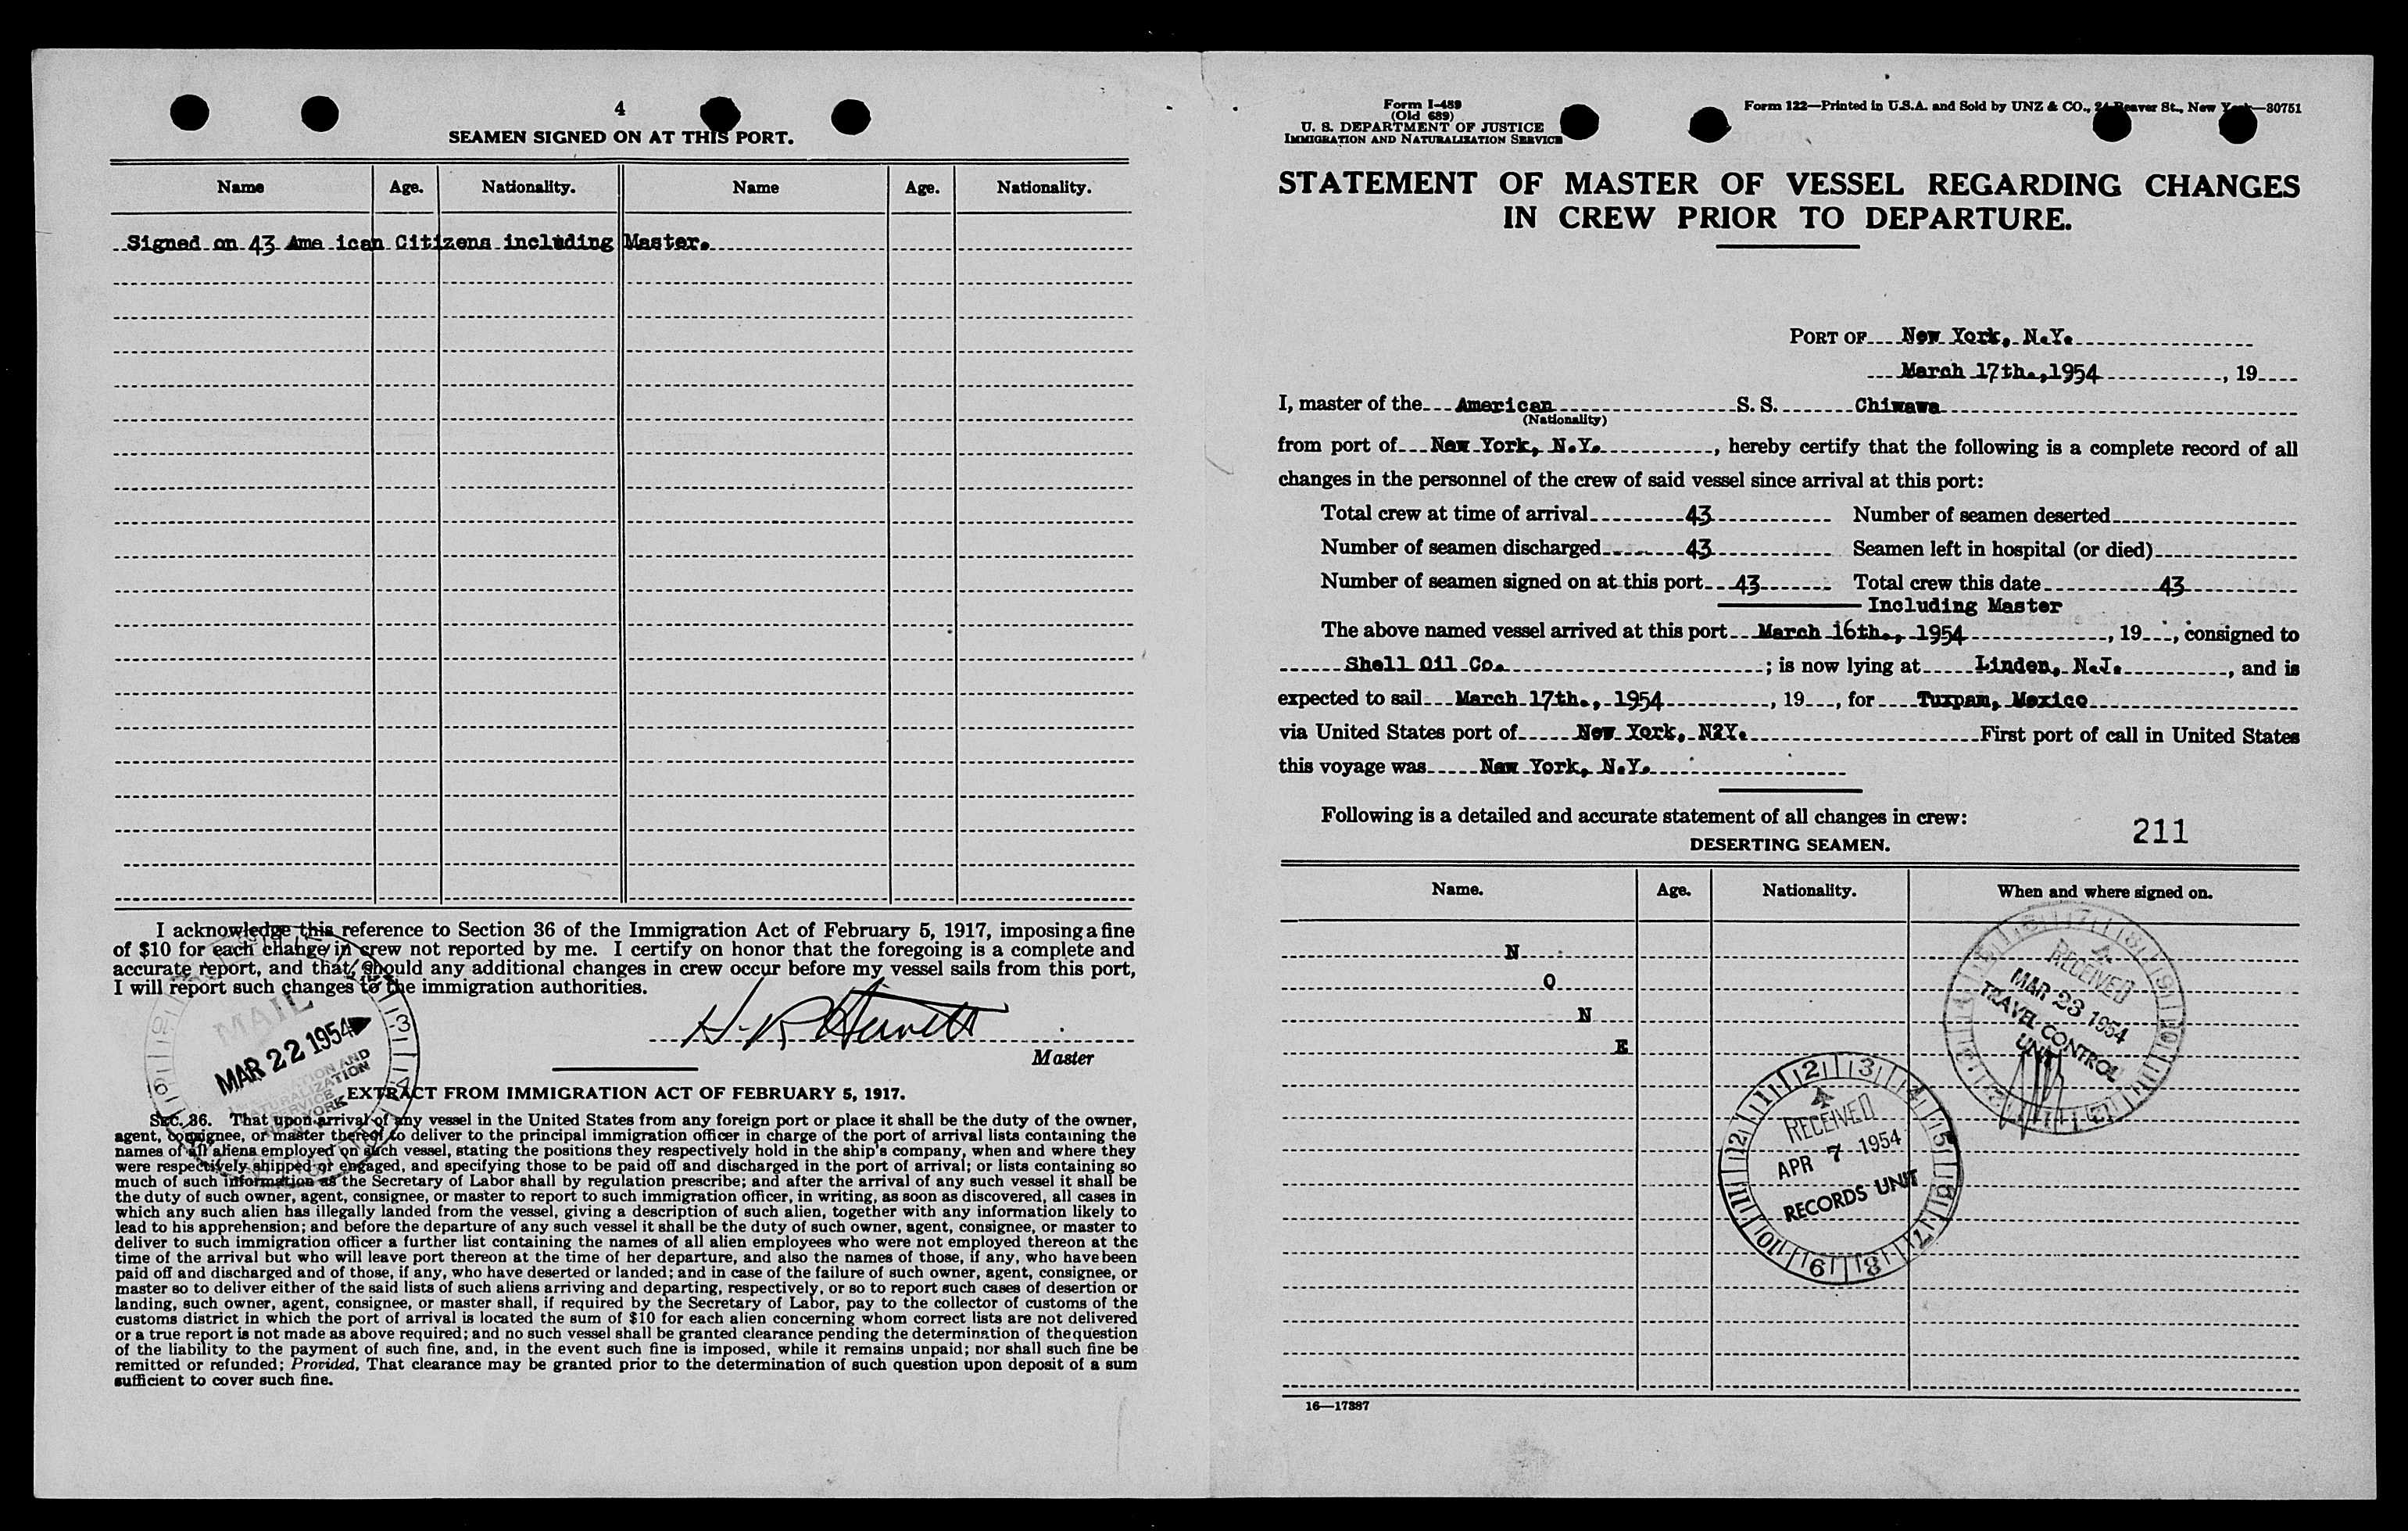 4
SEAMEN SIGNED ON AT THIS PORT.
Name Age. Nationality. Name Age. Nationality.
Signed on 43 Ame ican Citizens including Master.
I acknowledge this reference to Section 36 of the Immigration Act of February 5, 1917, imposing a fine
of $10 for each change in crew not reported by me. I certify on honor that the foregoing is a complete and
accurate report, and that, should any additional changes in crew occur before my vessel sails from this port,
I will report such changes to the immigration authorities.
MAIL
MAR 22 1954
Master
EXTRACT FROM IMMIGRATION ACT OF FEBRUARY 5, 1917.
SEC. 36. That upon arrival of any vessel in the United States from any foreign port or place it shall be the duty of the owner,
agent, consignee, or master thereof to deliver to the principal immigration officer in charge of the port of arrival lists containing the
names of all aliens employed on such vessel, stating the positions they respectively hold in the ship's company, when and where they
were respectively shipped or engaged, and specifying those to be paid off and discharged in the port of arrival; or lists containing so
much of such information as the Secretary of Labor shall by regulation prescribe; and after the arrival of any such vessel it shall be
the duty of such owner, agent, consignee, or master to report to such immigration officer, in writing, as soon as discovered, all cases in
which any such alien has illegally landed from the vessel, giving a description of such alien, together with any information likely to
lead to his apprehension; and before the departure of any such vessel it shall be the duty of such owner, agent, consignee, or master to
deliver to such immigration officer a further list containing the names of all alien employees who were not employed thereon at the
time of the arrival but who will leave port thereon at the time of her departure, and also the names of those, if any, who have been
paid off and discharged and of those, if any, who have deserted or landed; and in case of the failure of such owner, agent, consignee, or
master so to deliver either of the said lists of such aliens arriving and departing, respectively, or so to report such cases of desertion or
landing, such owner, agent, consignee, or master shall, if required by the Secretary of Labor, pay to the collector of customs of the
customs district in which the port of arrival is located the sum of $10 for each alien concerning whom correct lists are not delivered
or a true report is not made as above required; and no such vessel shall be granted clearance pending the determination of the question
of the liability to the payment of such fine, and, in the event such fine is imposed, while it remains unpaid; nor shall such fine be
remitted or refunded; Provided, That clearance may be granted prior to the determination of such question upon deposit of a sum
sufficient to cover such fine.
Form I-489
(Old 689)
U. S. DEPARTMENT OF JUSTICE
IMMIGRATION AND NATURALIZATION SERVICE
Form 122—Printed in U.S.A. and Sold by UNZ & CO., 24 Beaver St., New York—80751
STATEMENT OF MASTER OF VESSEL REGARDING CHANGES
IN CREW PRIOR TO DEPARTURE.
PORT OF New York, N.Y.
March 17th.,1954, 19
I, master of the American S. S. Chiwawa
(Nationality)
from port of New York, N.Y., hereby certify that the following is a complete record of all
changes in the personnel of the crew of said vessel since arrival at this port:
Total crew at time of arrival 43 Number of seamen deserted
Number of seamen discharged 43 Seamen left in hospital (or died)
Number of seamen signed on at this port 43 Total crew this date 43
Including Master
The above named vessel arrived at this port March 16th., 1954, 19, consigned to
Shell Oil Co.; is now lying at Linden, N.J., and is
expected to sail March 17th., 1954, 19, for Tuxpam, Mexico
via United States port of New York, N2Y. First port of call in United States
this voyage was New York, N.Y.
Following is a detailed and accurate statement of all changes in crew:
211
DESERTING SEAMEN.
Name. Age. Nationality. When and where signed on.
N
O
N
E
RECEIVED
MAR 23 1954
TRAVEL CONTROL
UNIT
RECEIVED
APR 7 1954
RECORDS UNIT
16—17387